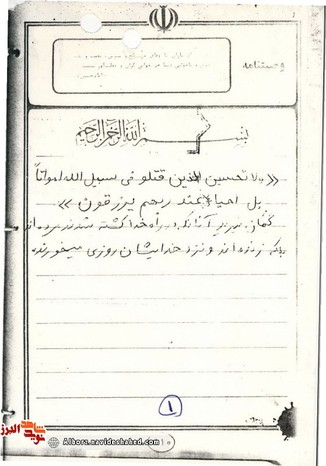 وصیتنامه
بسم الله الرحمن الرحیم
«ولا تحسبن الذین قتلو فی سبیل الله امواتاً
بل احیاء عند ربهم یرزقون»
گمان مبرید آنانکه براه خدا کشته شدند مرده‌اند
بلکه زنده‌اند و نزد خدایشان روزی میخورند
۱
شاهد
نوید
البرز
Alborz.navideshahed.com